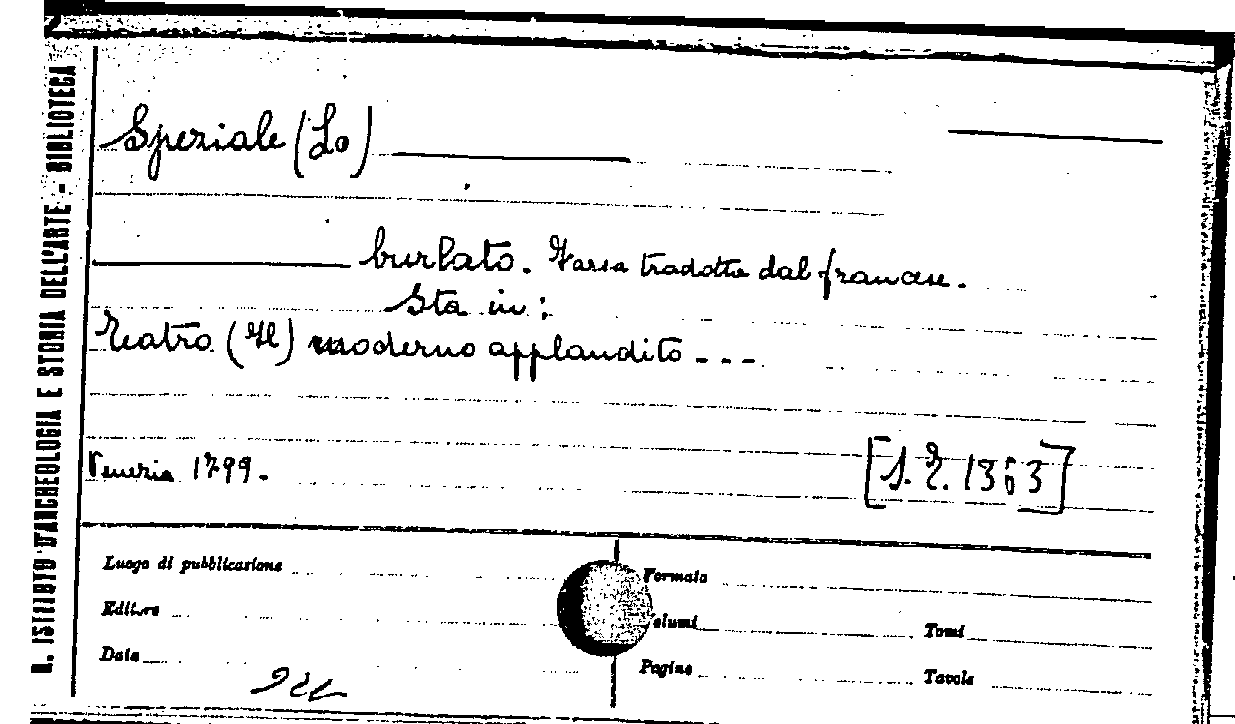 R. ISTITUTO D'ARCHEOLOGIA E STORIA DELL'ARTE - BIBLIOTECA
Speziale (Lo)
burlato. Farsa tradotta dal francese.
Sta in:
Teatro (Il) moderno applaudito ---
Venezia 1799.
[S. T. 1363]
Luogo di pubblicazione
Formato
Editore
Volumi
Tomi
Data
Pagine
Tavole